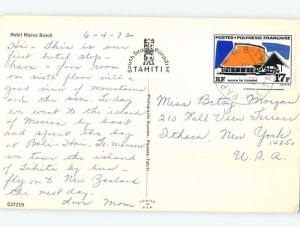 Hotel Maeva Beach
6-4-72
South Seas Paradise
TAHITI
POSTES • POLYNESIE FRANÇAISE
RF 17F
Hi - This is our
first hotel stop -
have a fine room
on sixth floor with a
good view of mountains
and the sea. Today
we went to the island
of Moorea by boat
and spent the day
at Bali-Hai. To-morrow
we tour the island
of Tahiti by bus -
fly on to New Zealand
the next day.
Love Mom
Miss Betsy Morgan
210 Fall View Terrace
Ithaca, New York
14850
U.S.A.
C27219